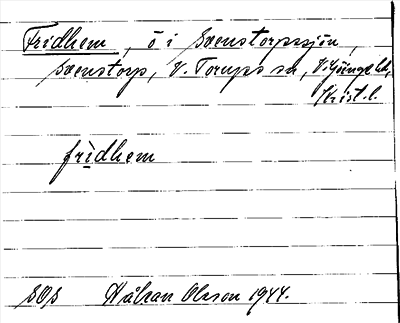 Fridhem, ö i Svenstorpssjön,
Svenstorp, V. Torups sn, V. Göinge hd,
Krist. l.
fridhem
SOS Håkan Olsson 1944.